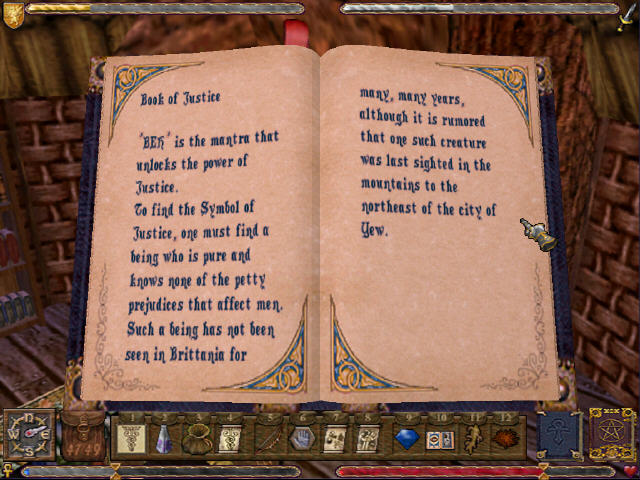 Book of Justice
"BEH" is the mantra that
unlocks the power of
Justice.
To find the Symbol of
Justice, one must find a
being who is pure and
knows none of the petty
prejudices that affect men.
Such a being has not been
seen in Brittania for
many, many years,
although it is rumored
that one such creature
was last sighted in the
mountains to the
northeast of the city of
Yew.
N
W E
S
4749
1 2 3 4 5 6 7 8 9 10 11 12